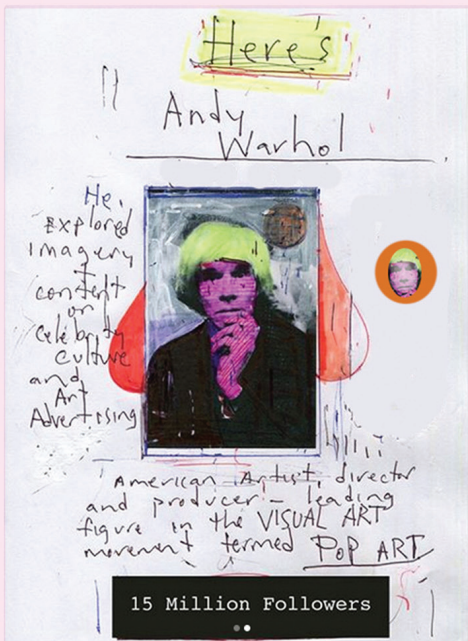 Here's
Andy
Warhol
He
Explored
imagery
+
content
on
Celebrity
Culture
and
Art
Advertising
American Artist, director
and producer – leading
figure in the VISUAL ART
movement termed POP ART
15 Million Followers